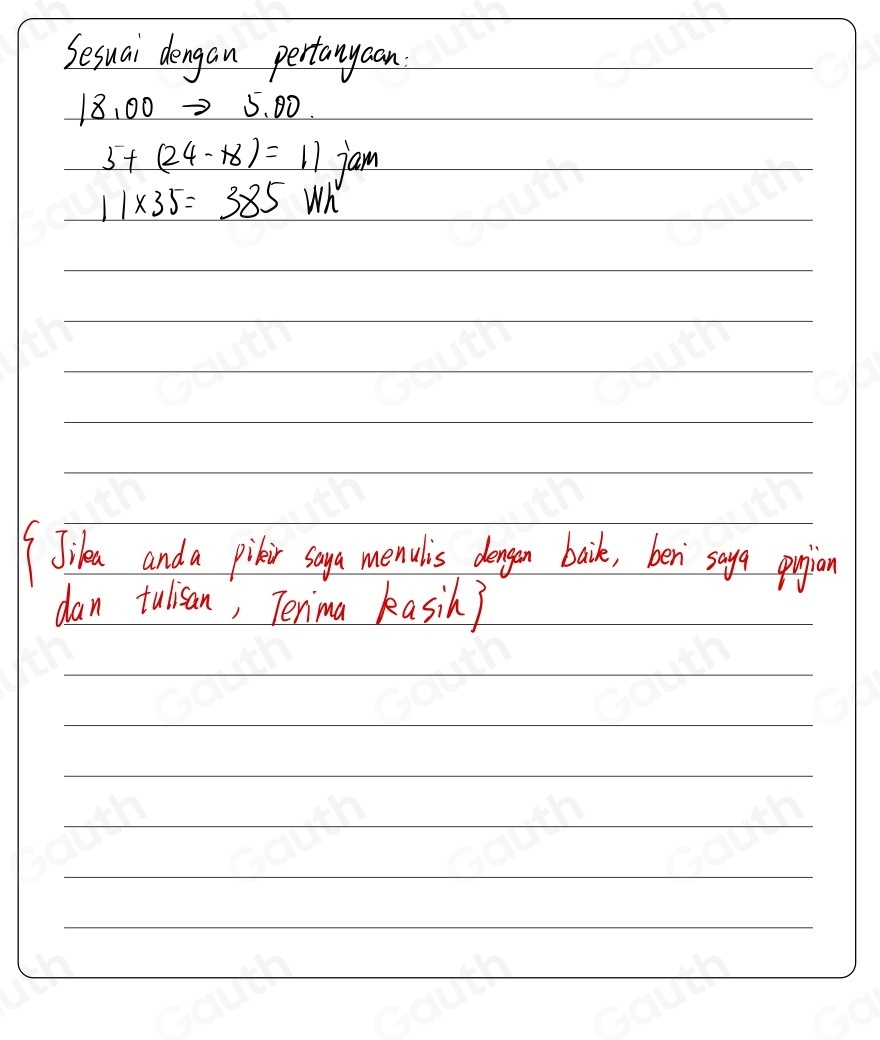 Sesuai dengan pertanyaan:
18.00 → 5.00.
5+ (24-18)= 11 jam
11×35= 385 Wh
{Jika anda pikir saya menulis dengan baik, beri saya pujian
dan tulisan, Terima kasih}
Gauth